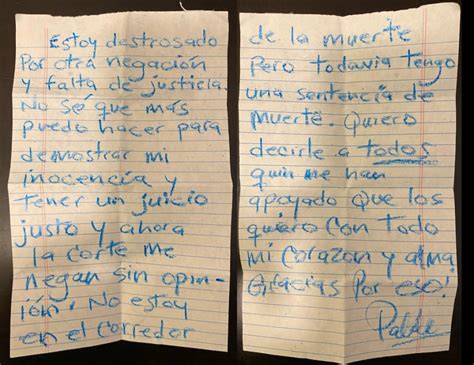 Estoy destrosado
Por otra negación
y falta de justicia.
No sé que más
puedo hacer para
demostrar mi
inocencia y
tener un juicio
justo y ahora
la corte me
negan sin opin-
ión. No estoy
en el corredor
de la muerte
Pero todavia tengo
una sentencia de
muerte. Quiero
decirle a todos
quin me han
apoyado que los
quiero con todo
mi corazon y alma.
Gracias Por eso!